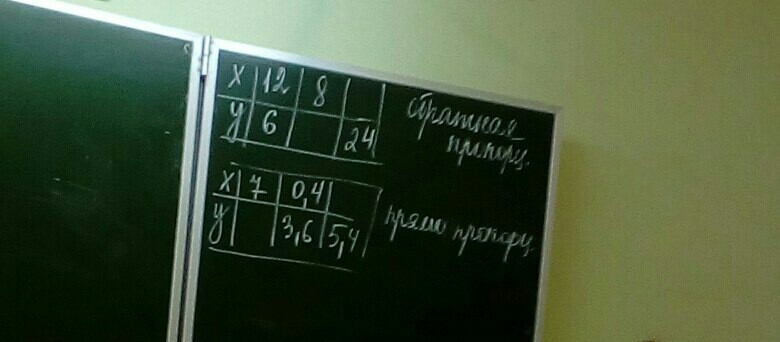 x 12 8
y 6 24
обратная
пропорц.
x 7 0,4
y 3,6 5,4
прямо пропорц.